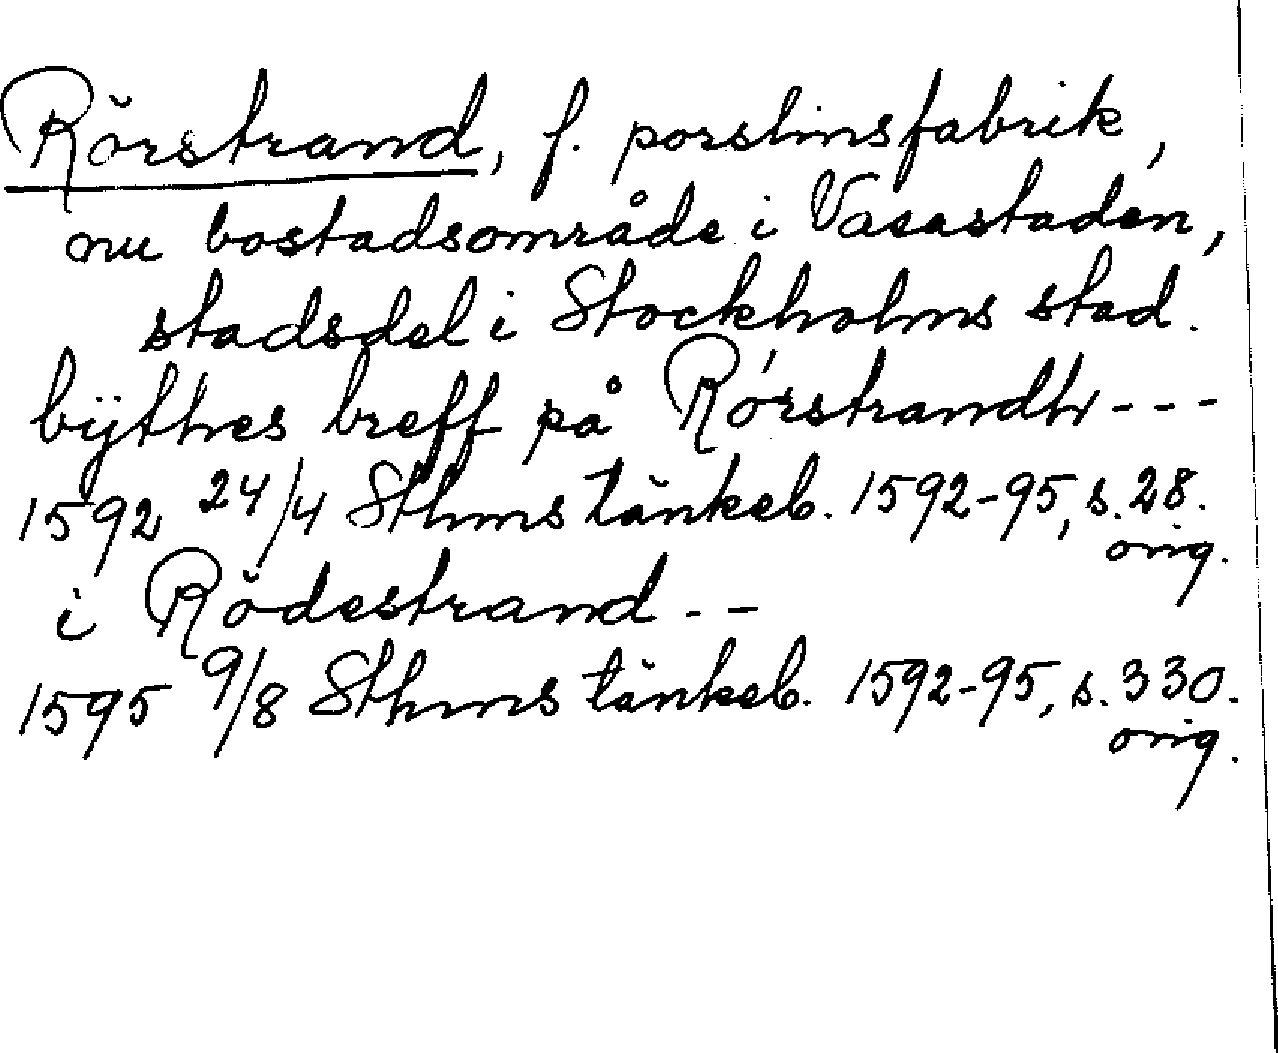 Rörstrand, f. porslinsfabrik,
nu bostadsområde i Vasastaden,
stadsdel i Stockholms stad.
bÿthes breff på Rórstrandh ---
1592 24/4 Sthms tänkeb. 1592-95, s. 28.
orig.
i Rödestrand --
1595 9/8 Sthms tänkeb. 1592-95, s. 330.
orig.